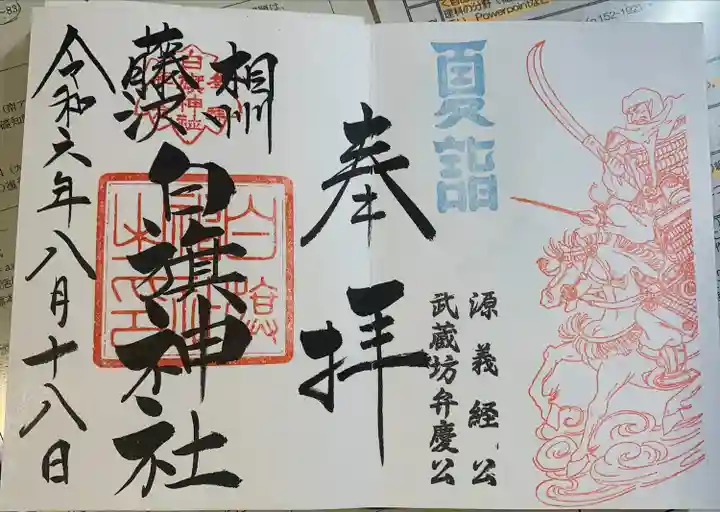 夏詣
源義経公
武蔵坊弁慶公
奉拝
相州
藤沢
白旗神社
白旗神社
令和六年八月十八日
-83)
Powerpoint
p.152-192)